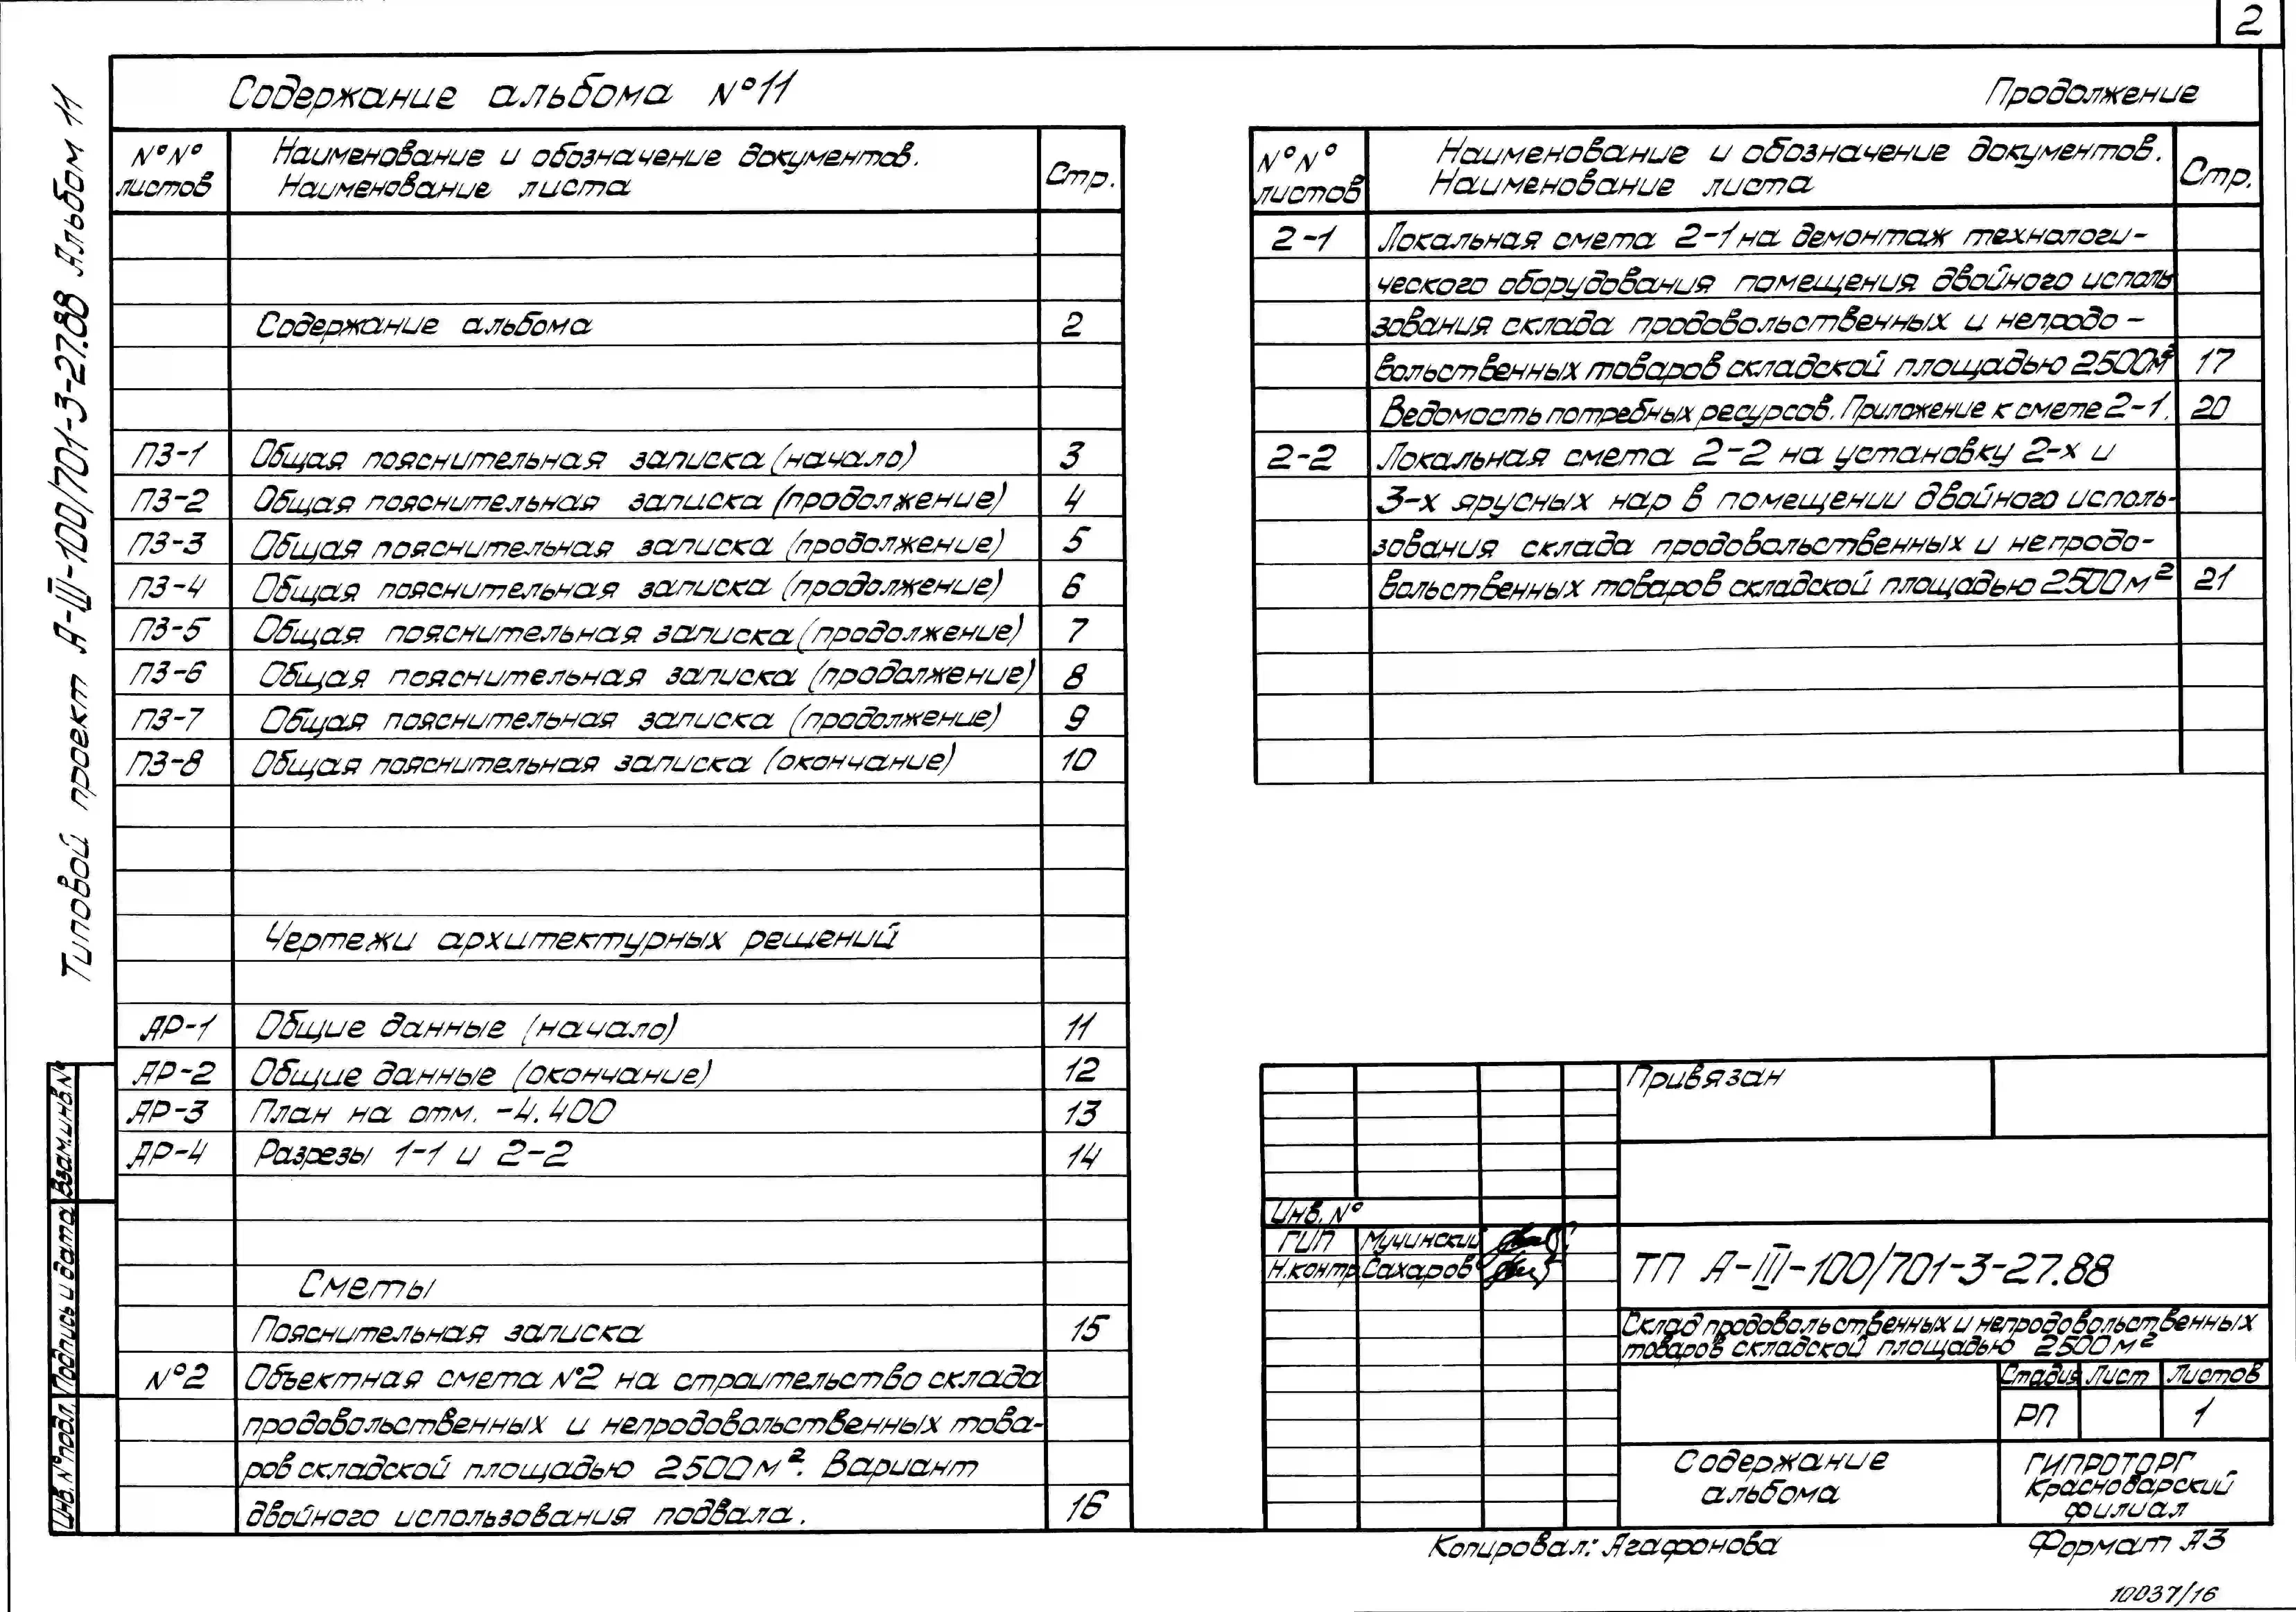 2
Типовой проект А-III-100/701-3-27.88 Альбом 11
Содержание альбома №11
№№ листов
Наименование и обозначение документов.
Наименование листа
Стр.
Содержание альбома 2
ПЗ-1 Общая пояснительная записка (начало) 3
ПЗ-2 Общая пояснительная записка (продолжение) 4
ПЗ-3 Общая пояснительная записка (продолжение) 5
ПЗ-4 Общая пояснительная записка (продолжение) 6
ПЗ-5 Общая пояснительная записка (продолжение) 7
ПЗ-6 Общая пояснительная записка (продолжение) 8
ПЗ-7 Общая пояснительная записка (продолжение) 9
ПЗ-8 Общая пояснительная записка (окончание) 10
Чертежи архитектурных решений
АР-1 Общие данные (начало) 11
АР-2 Общие данные (окончание) 12
АР-3 План на отм. -4.400 13
АР-4 Разрезы 1-1 и 2-2 14
Сметы
Пояснительная записка 15
№2 Объектная смета №2 на строительство склада
продовольственных и непродовольственных това-
ров складской площадью 2500м². Вариант
двойного использования подвала. 16
Продолжение
№№ листов
Наименование и обозначение документов.
Наименование листа
Стр.
2-1 Локальная смета 2-1 на демонтаж технологи-
ческого оборудования помещения двойного исполь
зования склада продовольственных и непродо-
вольственных товаров складской площадью 2500м² 17
Ведомость потребных ресурсов. Приложение к смете 2-1. 20
2-2 Локальная смета 2-2 на установку 2-х и
3-х ярусных нар в помещении двойного исполь-
зования склада продовольственных и непродо-
вольственных товаров складской площадью 2500м² 21
Привязан
Инв. №
ГИП Мучинский
Н.контр. Сахаров
ТП А-III-100/701-3-27.88
Склад продовольственных и непродовольственных
товаров складской площадью 2500м²
Стадия Лист Листов
РП 1
Содержание
альбома
ГИПРОТОРГ
Краснодарский
филиал
Взам.инв.№
Подпись и дата
Инв.№подл.
Копировал: Агафонова
Формат А3
10037/16